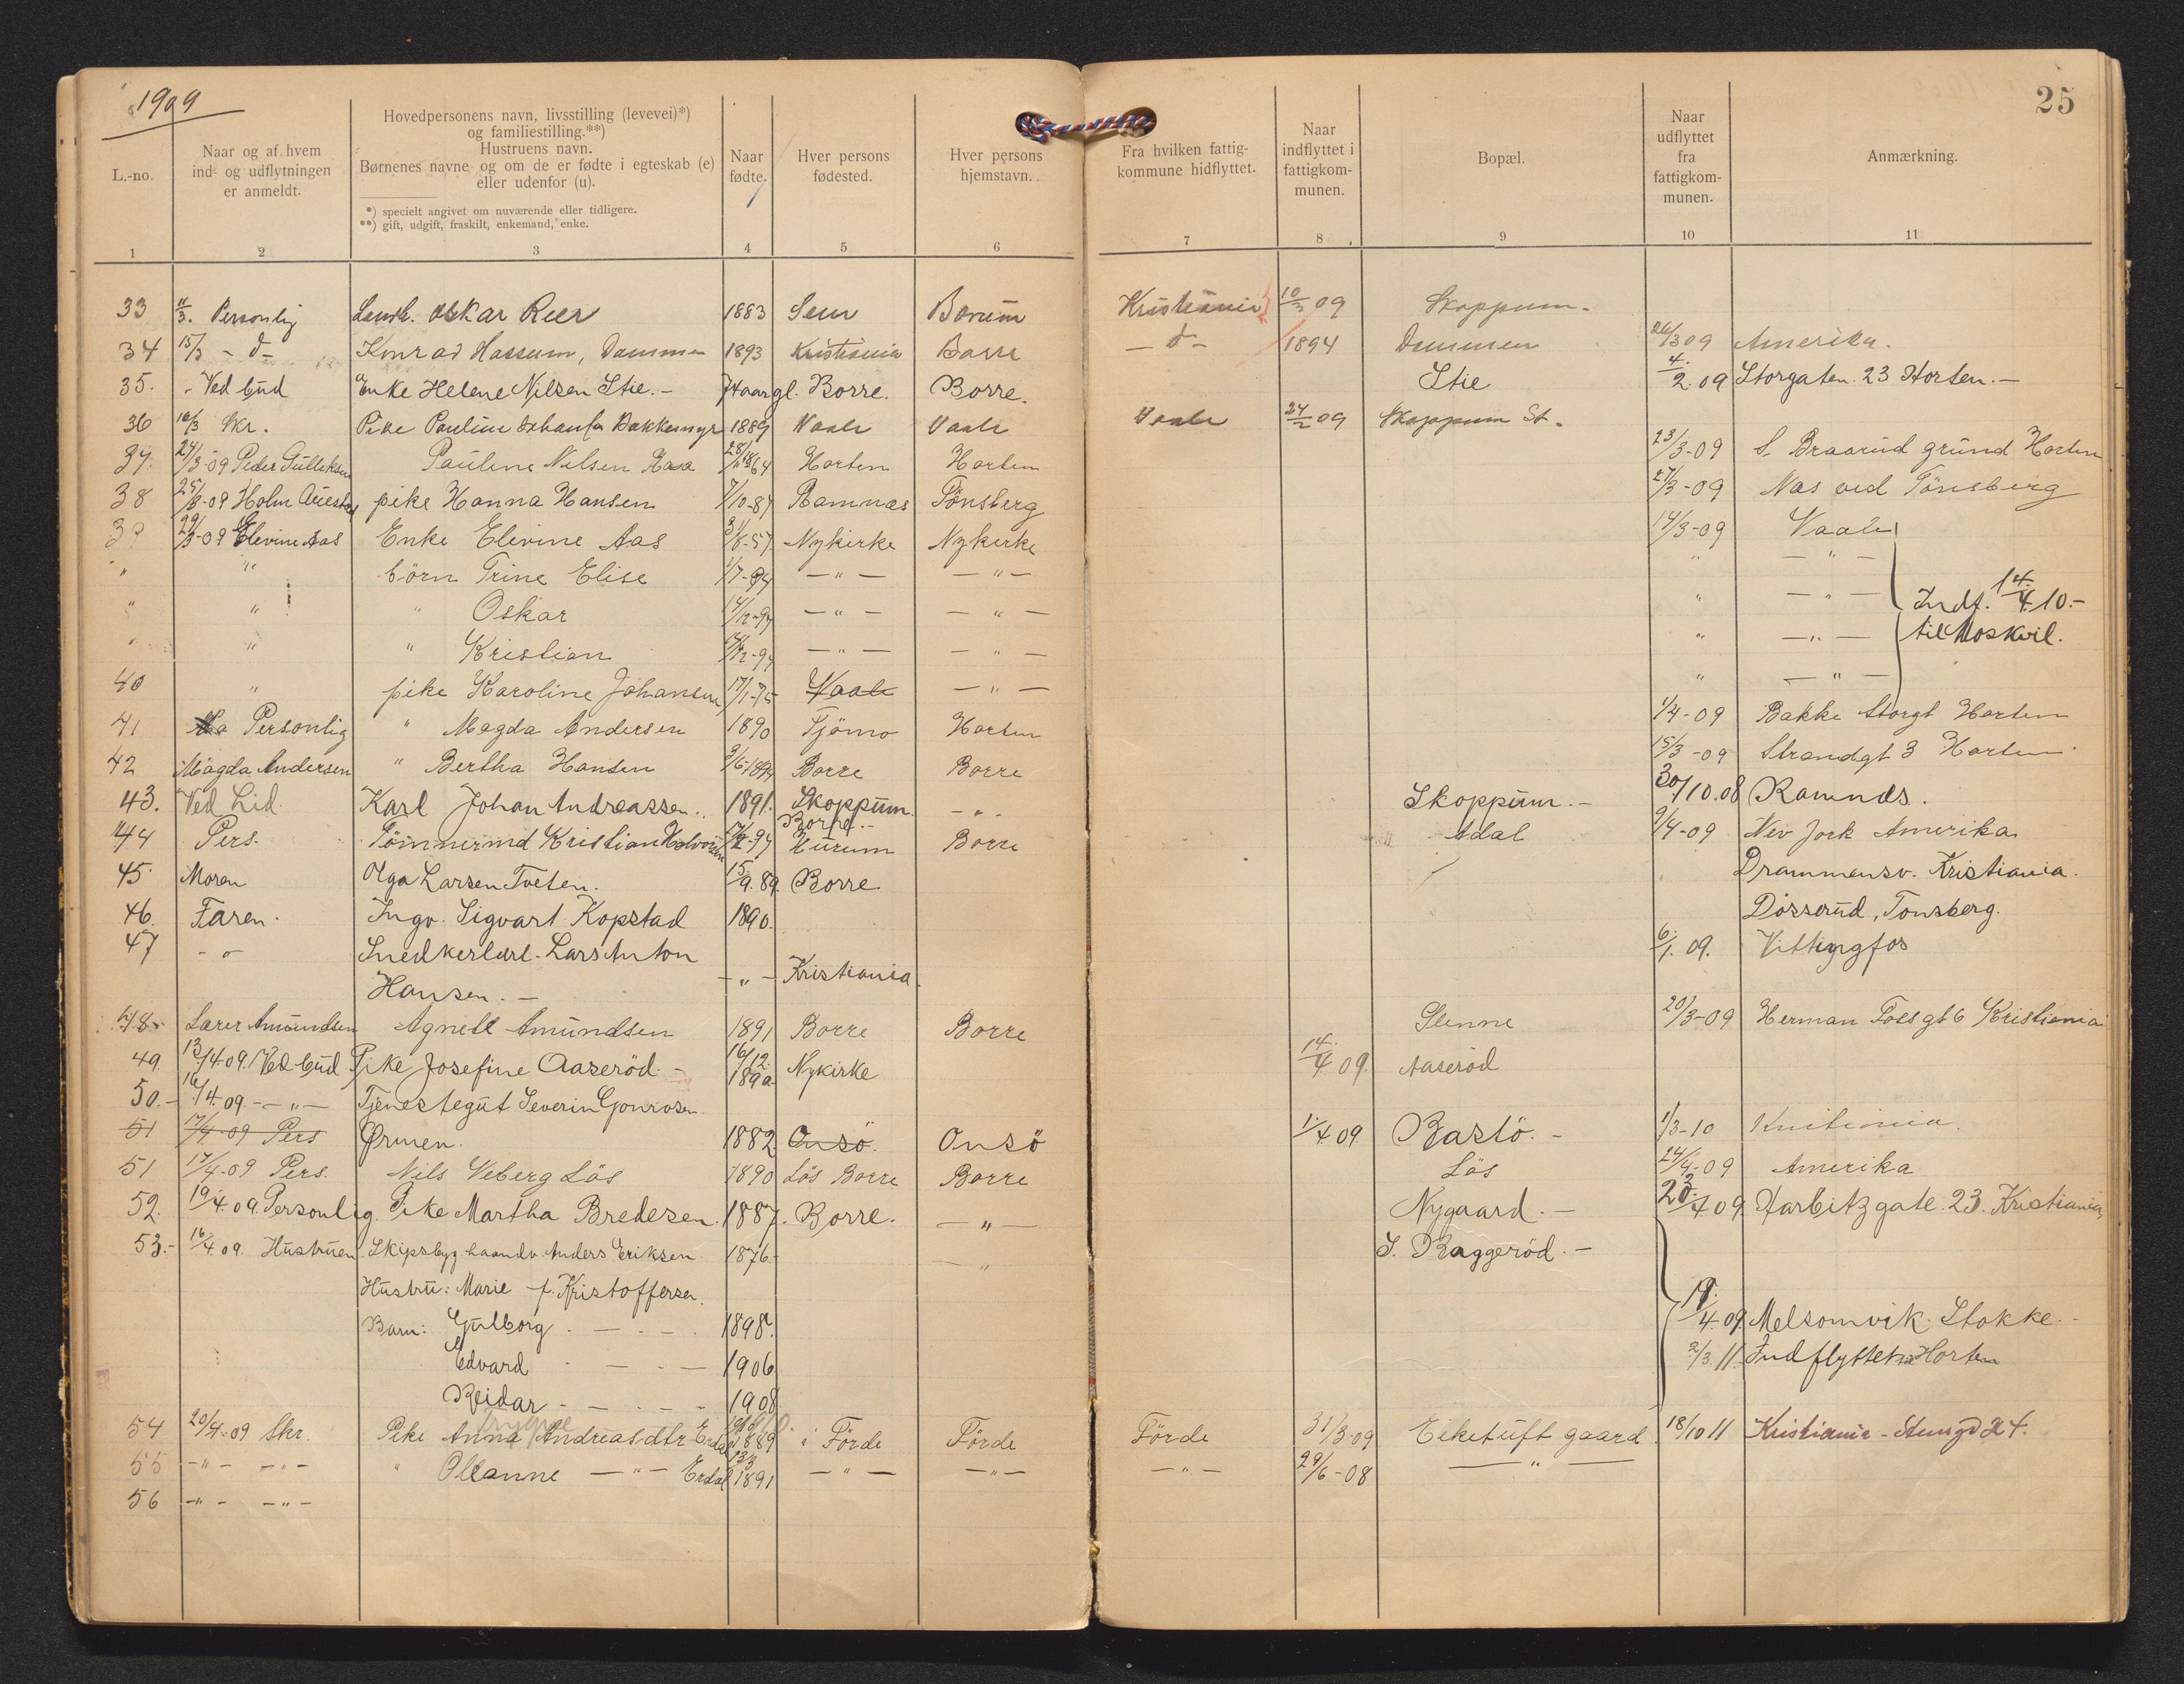 1909
25
L.-no.
Naar og af hvem ind- og udflytningen er anmeldt.
Hovedpersonens navn, livsstilling (levevei)*) og familiestilling.**)
Hustruens navn.
Børnenes navne og om de er fødte i egteskab (e) eller udenfor (u).
*) specielt angivet om nuværende eller tidligere.
**) gift, udgift, fraskilt, enkemand, enke.
Naar fødte.
Hver persons fødested.
Hver persons hjemstavn.
Fra hvilken fattigkommune hidflyttet.
Naar indflyttet i fattigkommunen.
Bopæl.
Naar udflyttet fra fattigkommunen.
Anmærkning.
1 2 3 4 5 6 7 8 9 10 11
33 11/3. Personlig Oskar 1883 Sem Kristiania 10/3 09 Skoppum.
34 15/3 - d- Konrad Hassum, Dammen 1893 Kristiania Borre - d - 1894 Dammen 26/3 09 Amerika.
35. - Ved bud Enke Helene Nilsen Stie.- 74 aar gl. Borre. Borre. Stie 4/2.09 Storgaten. 23 Horten.-
36 16/3 Skr. Pike Pauline Bakkemyr 1889 Vaale Vaale Vaale 24/2 09 Skoppum St.
37. 24/3-09 Peder Gulliksen Pauline Nilsen 28/11 1864 Horten Horten 23/3-09 S. Braarud grund Horten
38 25/3-09 Holm pike Hanna Hansen 7/10-87 Ramnæs Tönsberg 27/3-09 Nas ved Tönsberg
39 29/3-09 Elevine Aas Enke Elevine Aas 31/8-57 Nykirke Nykirke 14/3-09 Vaale
" " börn Trine Elise 1/7-94 - " - - " - " - " -
" " " Oskar 14/12-97 - " - - " - " - " - Indf. 14/4.10.-
" " " Kristian - " - - " - " - " - til Moskvil.
40 " pike Karoline Johansen 17/1-75 Vaale - " - " - " -
41 Personlig " Magda Andersen 1890 Tjömo Horten 1/4-09 Bakke Storgt Horten
42 Magda Andersen " Bertha Hansen Borre Borre 15/3-09 Strandgt 3 Horten
43. Ved Lid. Karl Johan Andreassen. 1891. Skoppum Borre.- - " - Skoppum.- 30/10.08 Ramnds.
44 Pers. Tömmermd Kristian Halvorsen Hurum Borre Adal 9/4-09 Nev Jork Amerika
45 Moren Olga Larsen Tveten. 15/9.89. Borre Drammensv. Kristiania.
46. Faren. Ingv. Sigvart Kopstad 1890. Dösserud, Tonsberg.
47 - o Snedkerlærl. Lars Anton 6/1.09. Vittingfos
Hansen.- - " - Kristiania.
48. Lærer Amundsen Agnete Amundsen 1891 Borre Borre Slenne 20/3-09 Herman Fossgt 6 Kristiania
49. 13/4.09. Ved bud Pike Josefine Aaseröd.- 16/12 1890 Nykirke 14/4 09. Aaseröd
50.- 16/4.09.- - " - Tjenestegut Severin
51 17/4-09 Pers Ørmen. 1882 Onsö. Onsö 1/4 09. Bastö.- 1/3-10 Kristiania.
51 17/4-09 Pers. Nils Veberg Lös 1890 Lös Borre Borre Lös 24/4-09 Amerika
52. 19/4.09. Personlig. Pike Martha Bredesen. 1887. Borre. - " - Nygaard.- 4 09 Harbitz gate. 23. Kristiania
53.- 16/4.09. Hustruen Skipsbyg.haandv. Anders Eriksen 1876.- - " S. Baggeröd.-
Hustru: Marie f. Kristoffersen.
Barn: Gulborg . - . - . 1898. 19./4.09. Melsomvik. Stokke.-
Edvard - - - - 1906 2/3.11. Indflyttet Horten
Reidar - - . - . 1908
Trygve 1910
54 20/4-09 Skr. Pike Anna Andreasdtr Erdal 1889 i Förde Förde Förde 31/3-09 Eiketuft gaard 18/10 11 Kristiania
55 - " - - " - " Oleanne - " - Erdal 1891 - " - - " - - " - 29/6-08 - " -
56 - " - - " -